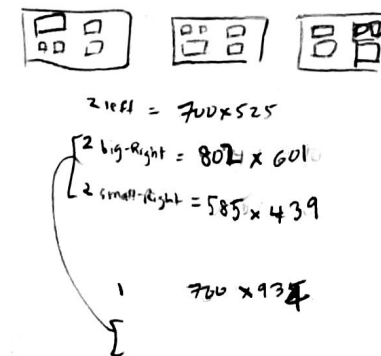 2 left = 700x525
2 big-Right = 802 x 601
2 small-Right = 585 x 439
1 700 x 934